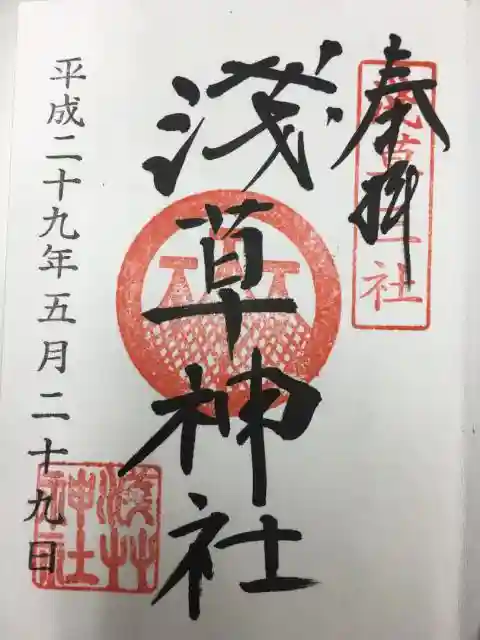 奉拝
浅草三社
淺草神社
平成二十九年五月二十九日
淺草神社